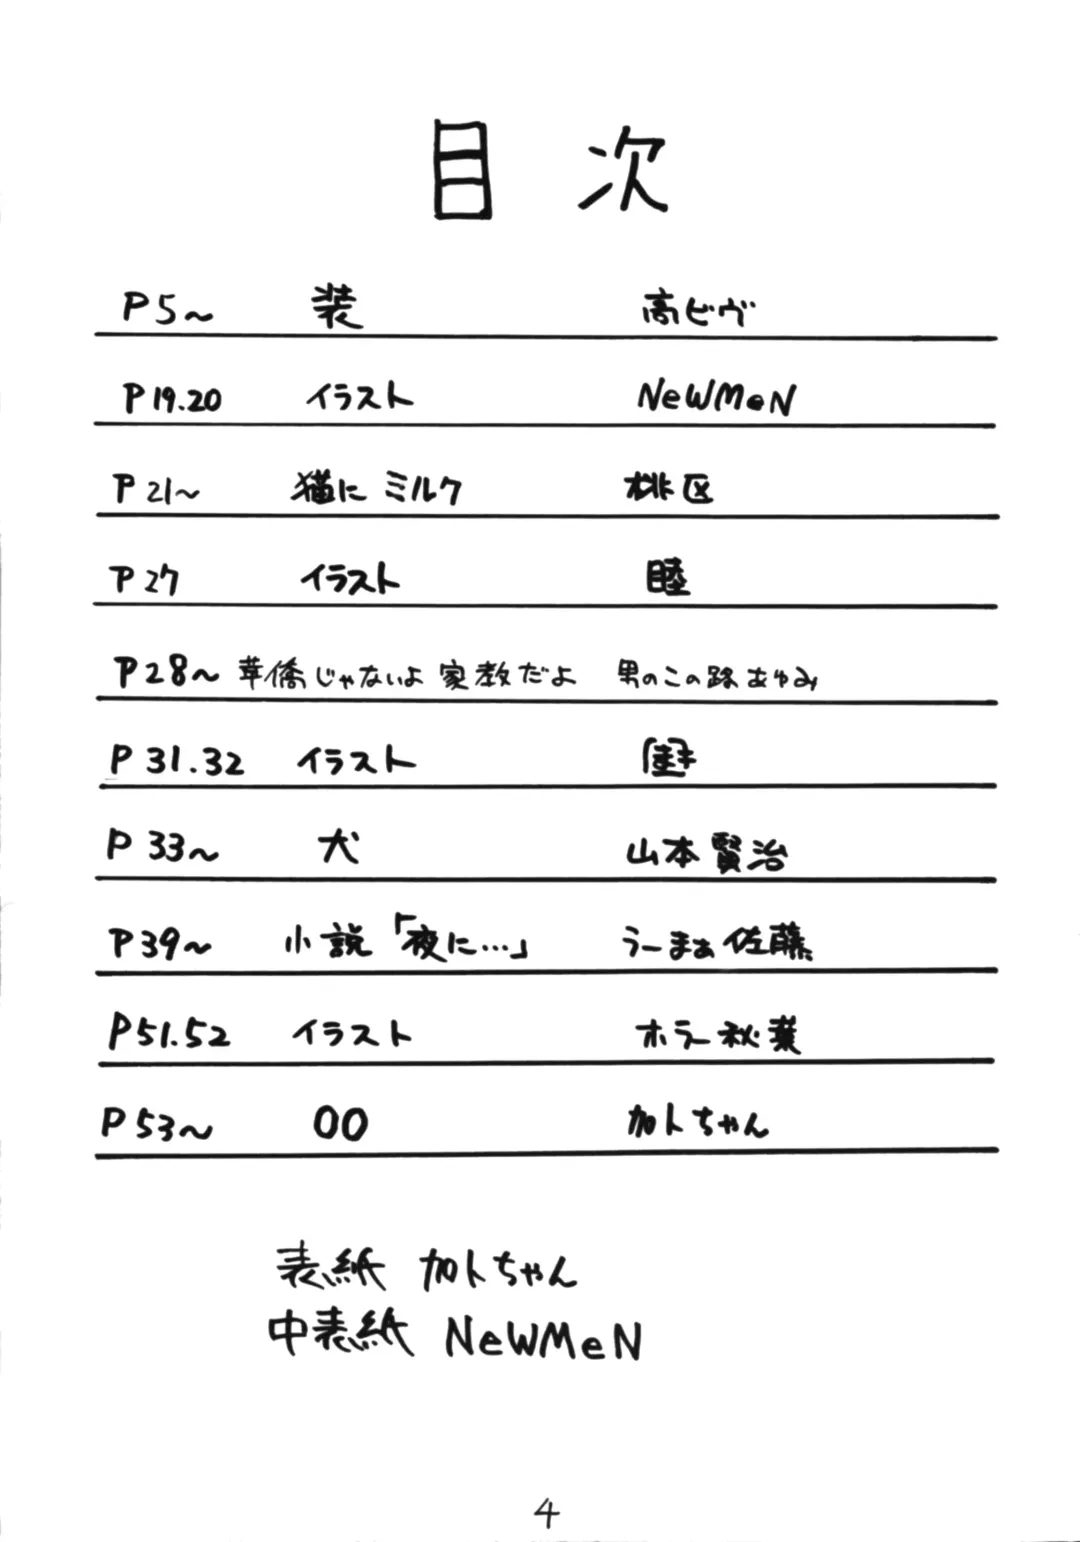 目次
P5~ 装 高ビヴ
P19.20 イラスト NeWMeN
P21~ 猫にミルク 桃区
P27 イラスト 睦
P28~ 華僑じゃないよ家教だよ 男のこの路あゆみ
P31.32 イラスト
P33~ 犬 山本賢治
P39~ 小説「夜に…」 うーまぁ佐藤
P51.52 イラスト ホラー秋葉
P53~ 00 加トちゃん
表紙 加トちゃん
中表紙 NeWMeN
4